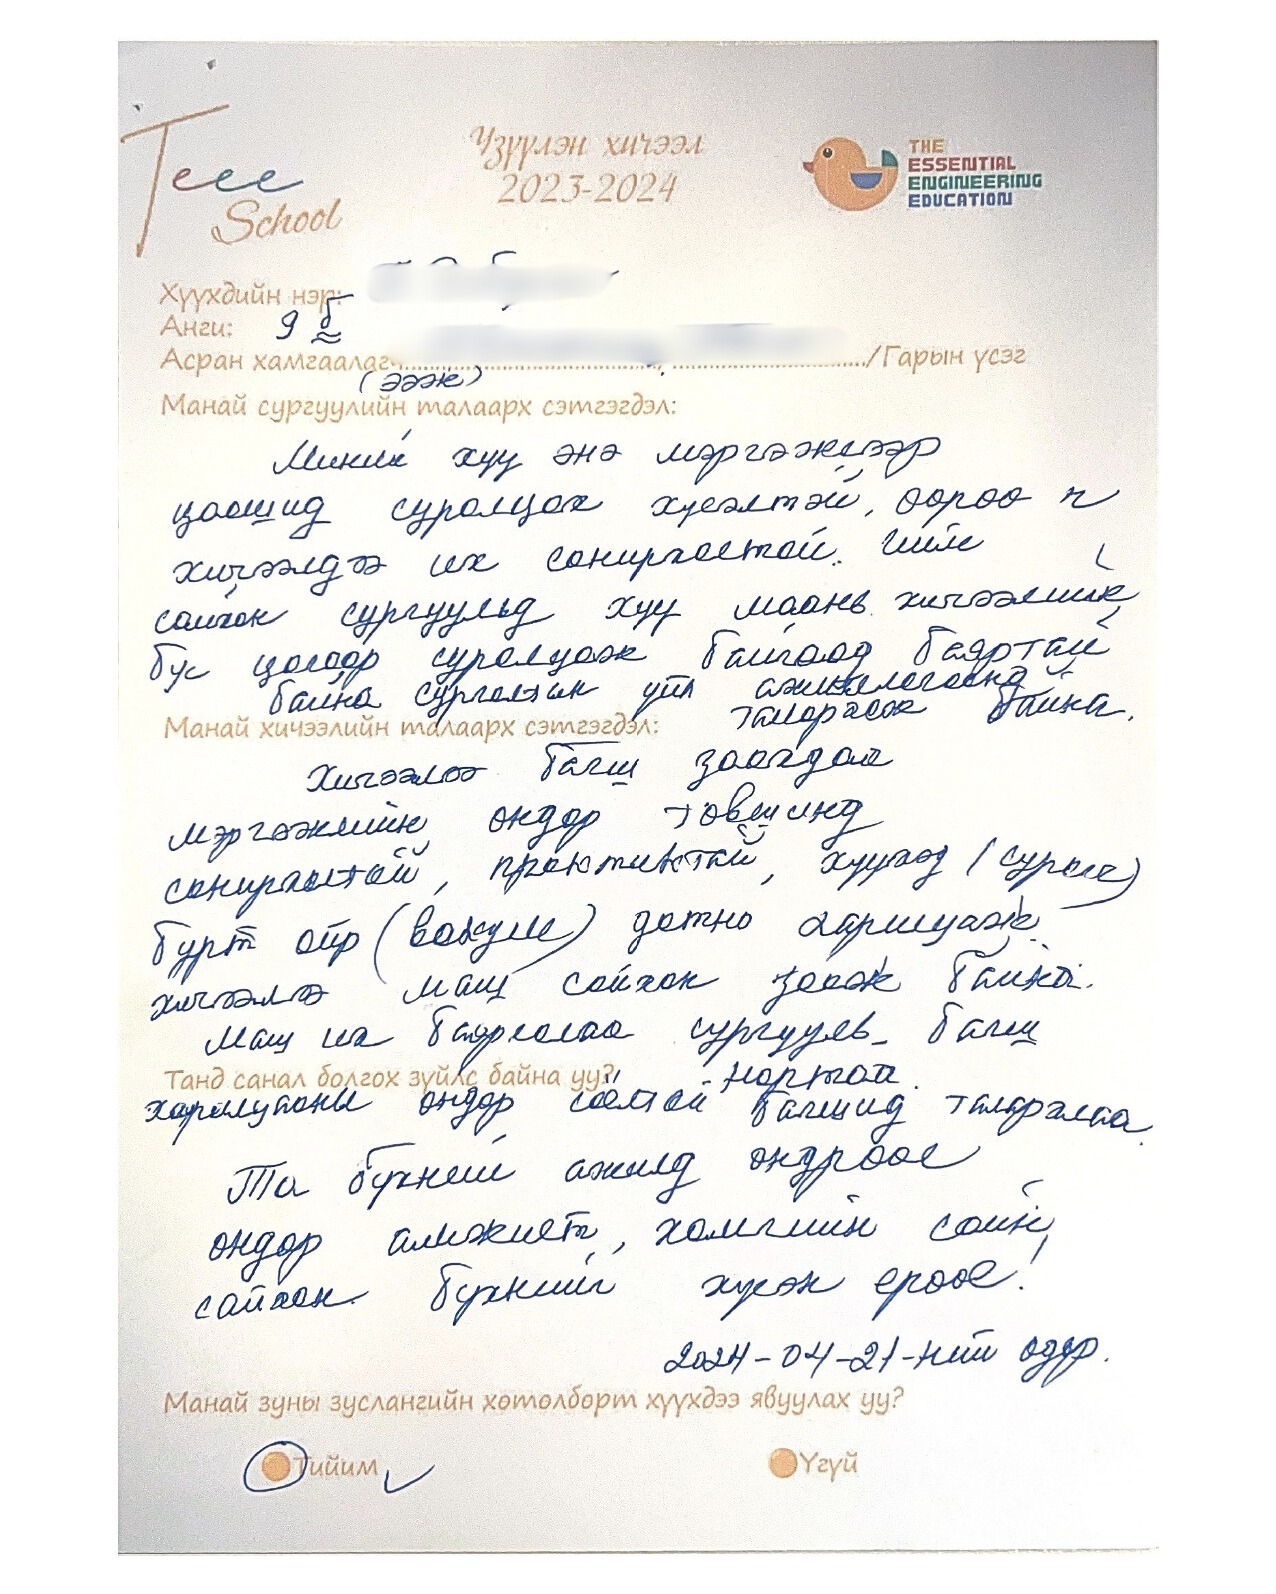 Teee School
Үзүүлэн хичээл
2023-2024
THE
ESSENTIAL
ENGINEERING
EDUCATION
Хүүхдийн нэр:
Анги: 9 б
Асран хамгаалагч /Гарын үсэг
(ээж)
Манай сургуулийн талаарх сэтгэгдэл:
Миний хүү энэ мэргэжлээр
цаашид суралцах хүсэлтэй, өөрөө ч
хичээлдээ их сонирхолтой. Ийм
сайхан сургуульд хүү маань хичээлийн
бус цагаар суралцаж байгаад баяртай
байна сургалтын үйл ажиллагаанд
талархаж байна.
Манай хичээлийн талаарх сэтгэгдэл:
Хичээлээ багш заахдаа
мэргэжлийн өндөр төвшинд
сонирхолтой, практиктай, хүүхэд (сурагч)
бүрт ойр дотно харилцаж
хичээлээ маш сайхан зааж байна.
Маш их баярлалаа сургууль багш
Танд санал болгох зүйлс байна уу?
нартаа.
харилцааны өндөр багшид талархлаа.
Та бүхний ажилд өндрөөс
өндөр амжилт, хамгийн сайн
сайхан бүхнийг хүсэн ерөөе!
2024-04-21-ний өдөр.
Манай зуны зуслангийн хөтөлбөрт хүүхдээ явуулах уу?
Тийим
Үгүй